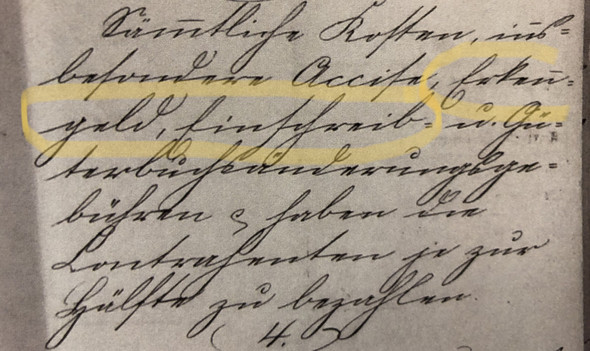 Sämmtliche Kosten, ins=
besondere Accise, Erken̅=
geld, Einschreib= u. Gü=
terbuchsänderungsge=
bühren haben die
Contrahenten je zur
Hälfte zu bezahlen.
4.